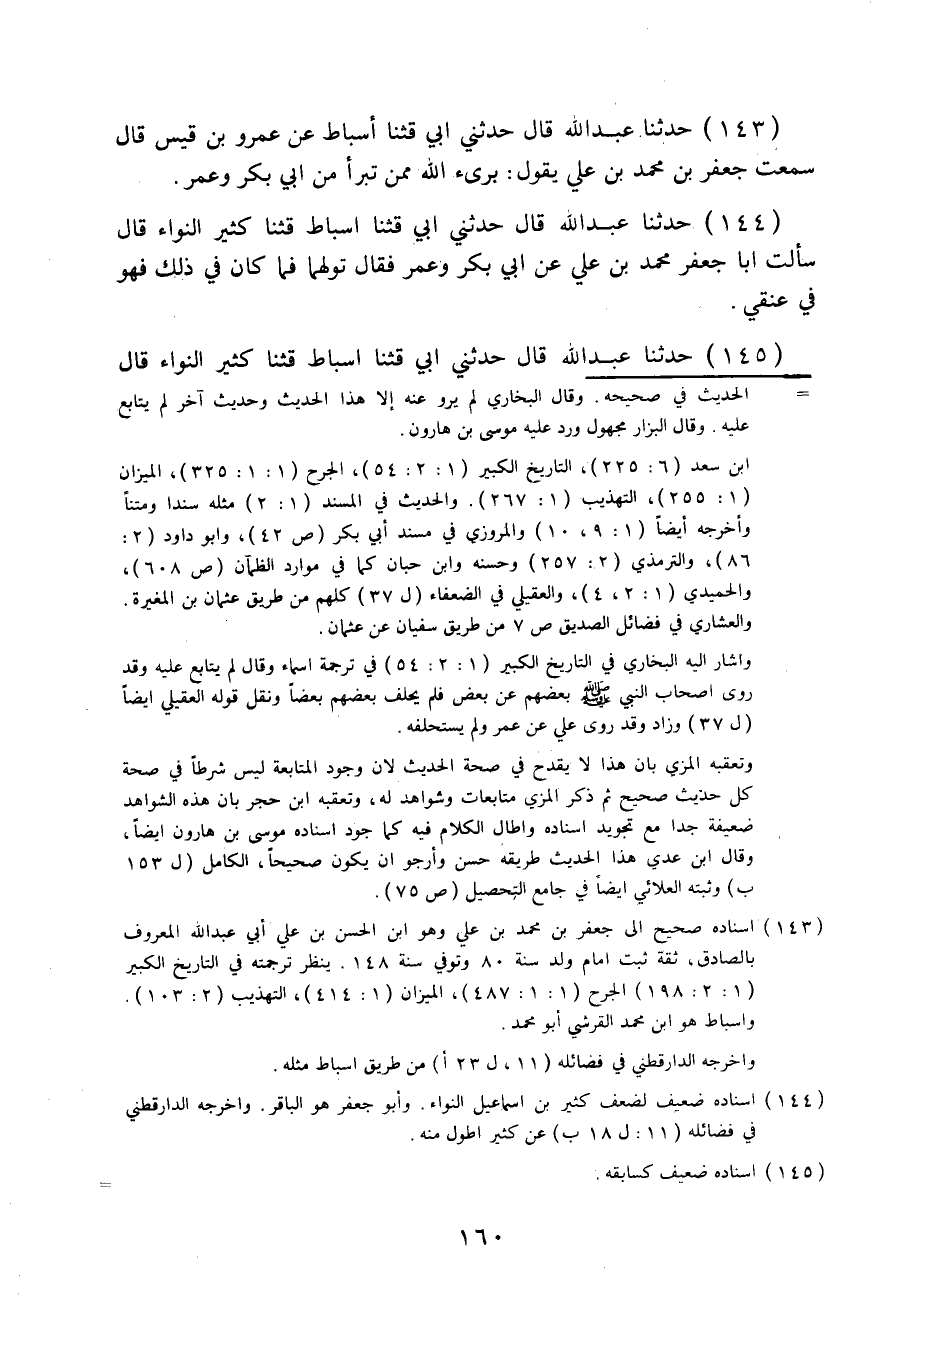 (١٤٣) حدثنا عبدالله قال حدثني ابي قثنا أسباط عن عمرو بن قيس قال
سمعت جعفر بن محمد بن علي يقول: برىء الله ممن تبرأ من ابي بكر وعمر.
(١٤٤) حدثنا عبدالله قال حدثني ابي قثنا اسباط قثنا كثير النواء قال
سألت ابا جعفر محمد بن علي عن ابي بكر وعمر فقال تولهما فما كان في ذلك فهو
في عنقي.
(١٤٥) حدثنا عبدالله قال حدثني ابي قثنا اسباط قثنا كثير النواء قال
= الحديث في صحيحه. وقال البخاري لم يرو عنه إلا هذا الحديث وحديث آخر لم يتابع
عليه. وقال البزار مجهول ورد عليه موسى بن هارون.
ابن سعد (٦: ٢٢٥)، التاريخ الكبير (١: ٢: ٥٤)، الجرح (١: ١: ٣٢٥)، الميزان
(١: ٢٥٥)، التهذيب (١: ٢٦٧). والحديث في المسند (١: ٢) مثله سندا ومتناً
وأخرجه أيضاً (١: ٩، ١٠) والمروزي في مسند أبي بكر (ص ٤٢)، وابو داود (٢:
٨٦)، والترمذي (٢: ٢٥٧) وحسنه وابن حبان كما في موارد الظمآن (ص ٦٠٨)،
والحميدي (١: ٢، ٤)، والعقيلي في الضعفاء (ل ٣٧) كلهم من طريق عثمان بن المغيرة.
والعشاري في فضائل الصديق ص ٧ من طريق سفيان عن عثمان.
واشار اليه البخاري في التاريخ الكبير (١: ٢: ٥٤) في ترجمة اسماء وقال لم يتابع عليه وقد
روى اصحاب النبي ﷺ بعضهم عن بعض فلم يحلف بعضهم بعضاً ونقل قوله العقيلي ايضاً
(ل ٣٧) وزاد وقد روى علي عن عمر ولم يستحلفه.
وتعقبه المزي بان هذا لا يقدح في صحة الحديث لان وجود المتابعة ليس شرطاً في صحة
كل حديث صحيح ثم ذكر المزي متابعات وشواهد له، وتعقبه ابن حجر بان هذه الشواهد
ضعيفة جدا مع تجويد اسناده واطال الكلام فيه كما جود اسناده موسى بن هارون ايضاً،
وقال ابن عدي هذا الحديث طريقه حسن وأرجو ان يكون صحيحاً، الكامل (ل ١٥٣
ب) وثبته العلائي ايضاً في جامع التحصيل (ص ٧٥).
(١٤٣) اسناده صحيح الى جعفر بن محمد بن علي وهو ابن الحسن بن علي أبي عبدالله المعروف
بالصادق، ثقة ثبت امام ولد سنة ٨٠ وتوفي سنة ١٤٨. ينظر ترجمته في التاريخ الكبير
(١: ٢: ١٩٨) الجرح (١: ١: ٤٨٧)، الميزان (١: ٤١٤)، التهذيب (٢: ١٠٣).
واسباط هو ابن محمد القرشي أبو محمد.
واخرجه الدارقطني في فضائله (١١، ل ٢٣ أ) من طريق اسباط مثله.
(١٤٤) اسناده ضعيف لضعف كثير بن اسماعيل النواء. وأبو جعفر هو الباقر. واخرجه الدارقطني
في فضائله (١١: ل ١٨ ب) عن كثير اطول منه.
(١٤٥) اسناده ضعيف كسابقه.
=
١٦٠